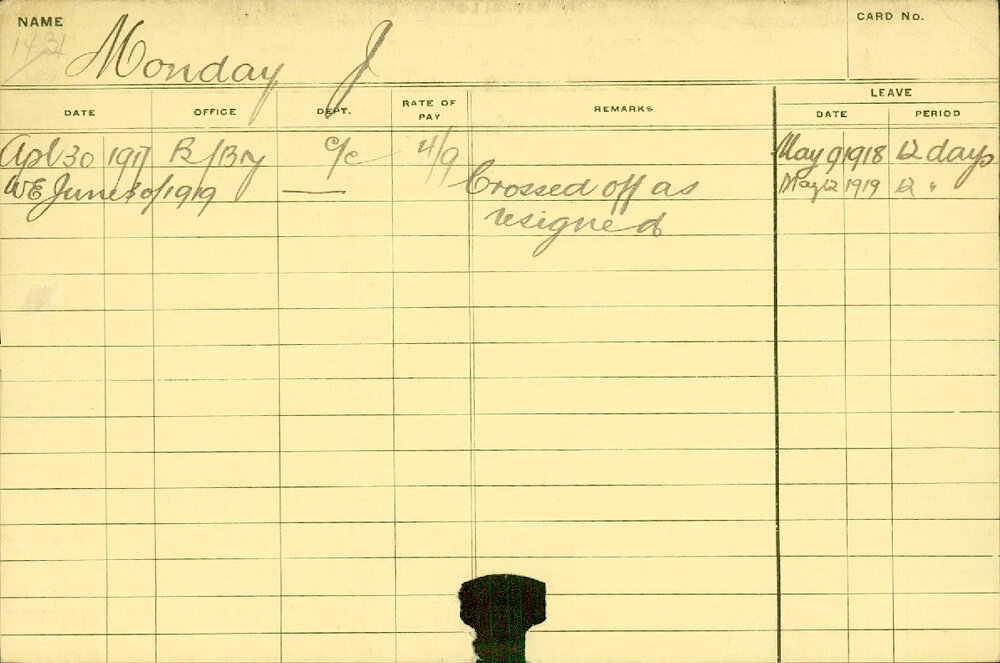 NAME
CARD No.
Monday J
LEAVE
DATE OFFICE DEPT. RATE OF PAY REMARKS DATE PERIOD
Apl 30 1917 R/Bry C/C 4/9 May 9 1918 12 days
WE June 30/1919 — Crossed off as May 12 1919 12 "
resigned